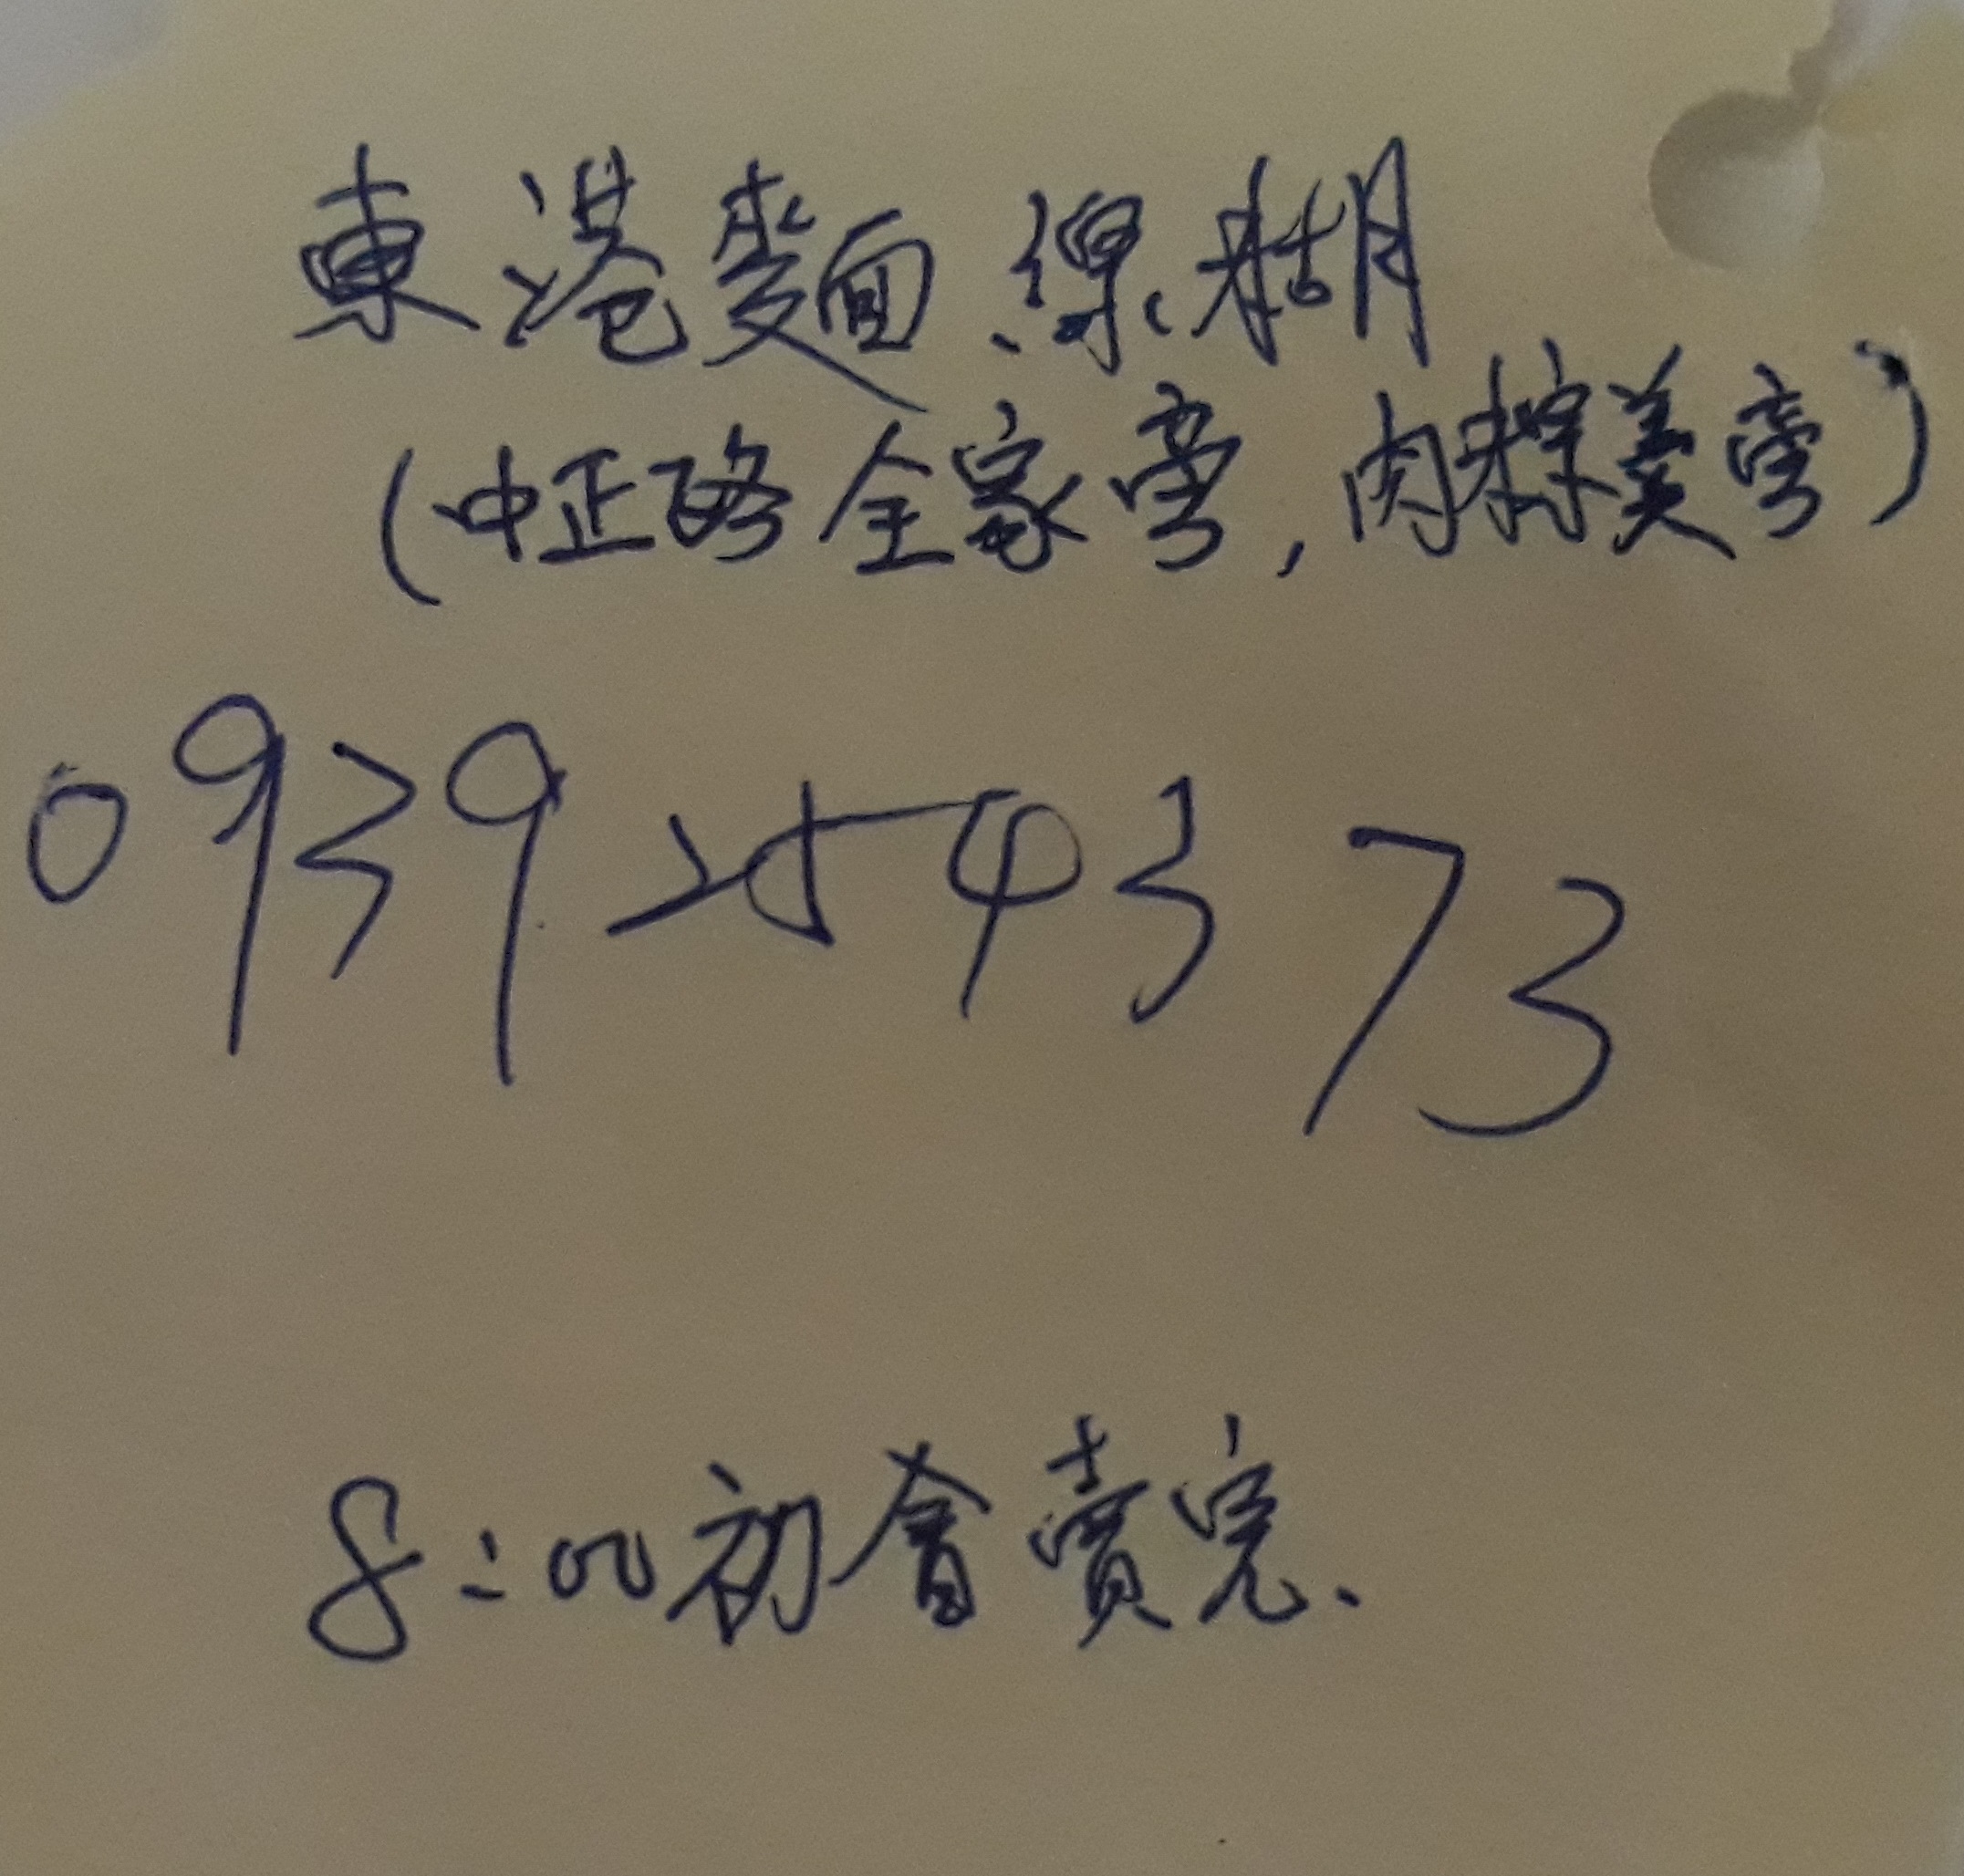 東港麵線糊
(中正路全家旁,肉粽美旁)
0939254373
8:00初會賣完.